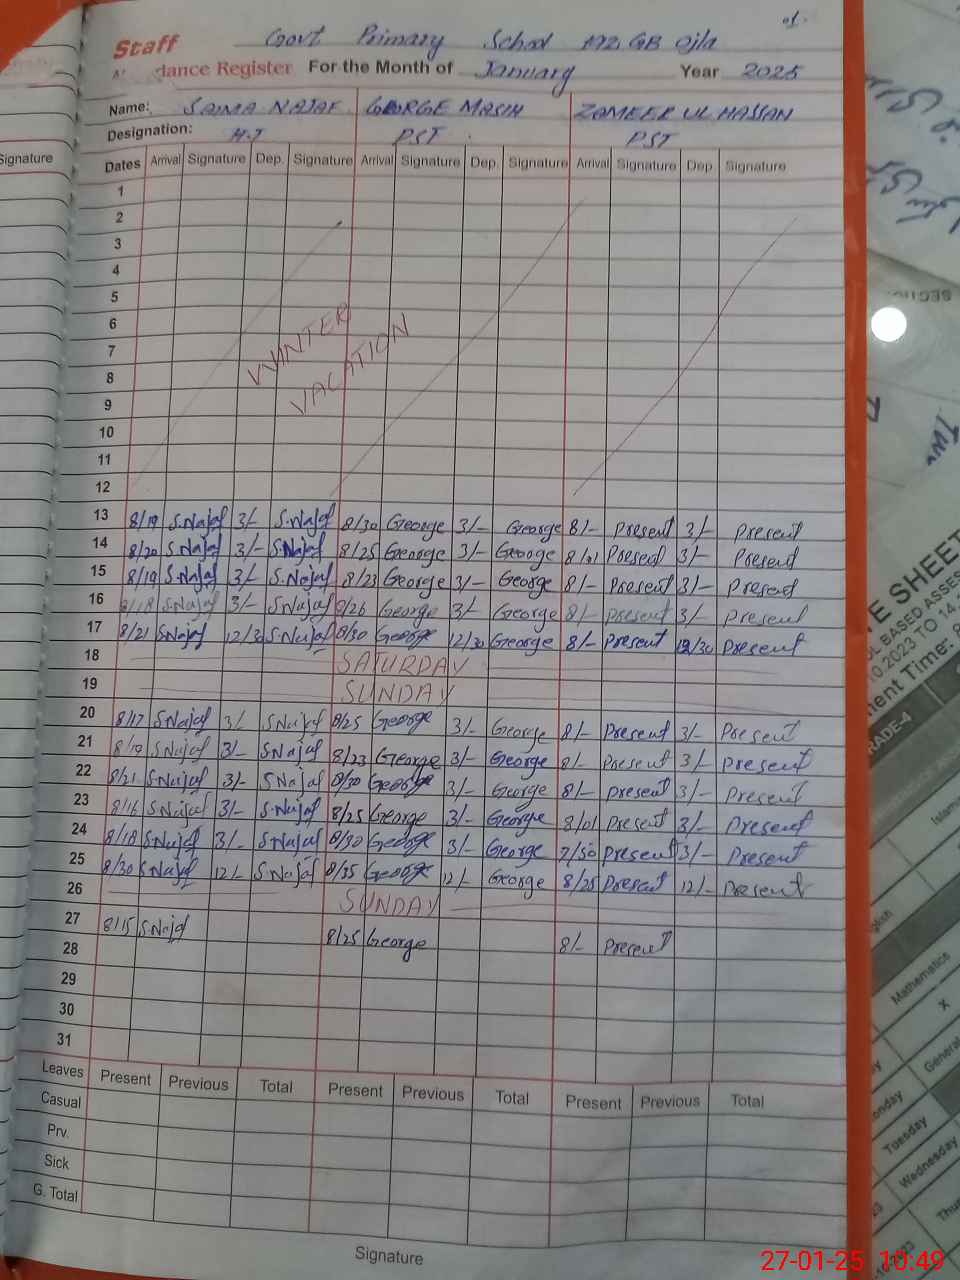 of.
Staff Govt Primary School 172 GB Ojla
dance Register For the Month of January Year 2025
Name: SAIMA NAJAF. GEORGE MASIH ZAMEER UL HASSAN
Designation: H.T PST. PST
Signature
Dates Arrival Signature Dep. Signature Arrival Signature Dep. Signature Arrival Signature Dep Signature
1
2
3
4
5
6
7
8
9
10
11
12
WINTER
VACATION
13 8/19 S.Najaf 3/- S.Najaf 8/30 George 3/- George 8/- Present 3/- Present
14 8/20 S.Najaf 3/- S.Najaf 8/25 George 3/- George 8/01 Present 3/- Present
15 8/19 S.Najaf 3/- S.Najaf 8/23 George 3/- George 8/- Present 3/- Present
16 8/18 S.Najaf 3/- S.Najaf 8/26 George 3/- George 8/- Present 3/- Present
17 8/21 S.Najaf 12/30 S.Najaf 8/30 George 12/30 George 8/- Present 12/30 Present
18 SATURDAY
19 SUNDAY
20 8/17 S.Najaf 3/- S.Najaf 8/25 George 3/- George 8/- Present 3/- Present
21 8/19 S.Najaf 3/- S.Najaf 8/23 George 3/- George 8/- Present 3/- Present
22 8/21 S.Najaf 3/- S.Najaf 8/30 George 3/- George 8/- Present 3/- Present
23 8/16 S.Najaf 3/- S.Najaf 8/25 George 3/- George 8/01 Present 3/- Present
24 8/18 S.Najaf 3/- S.Najaf 8/30 George 3/- George 7/50 Present 3/- Present
25 8/30 S.Najaf 12/- S.Najaf 8/35 George 12/- George 8/25 Present 12/- Present
26 SUNDAY
27 8/15 S.Najaf 8/25 George 8/- Present
28
29
30
31
Leaves Present Previous Total Present Previous Total Present Previous Total
Casual
Prv.
Sick
G. Total
Signature
SECTION
E SHEET
OL BASED ASSES
10.2023 TO 14.
ment Time: 8
RADE-4
Islami
glish
Mathematics
X
General
onday
Tuesday
Wednesday
Thu
27-01-25 10:49